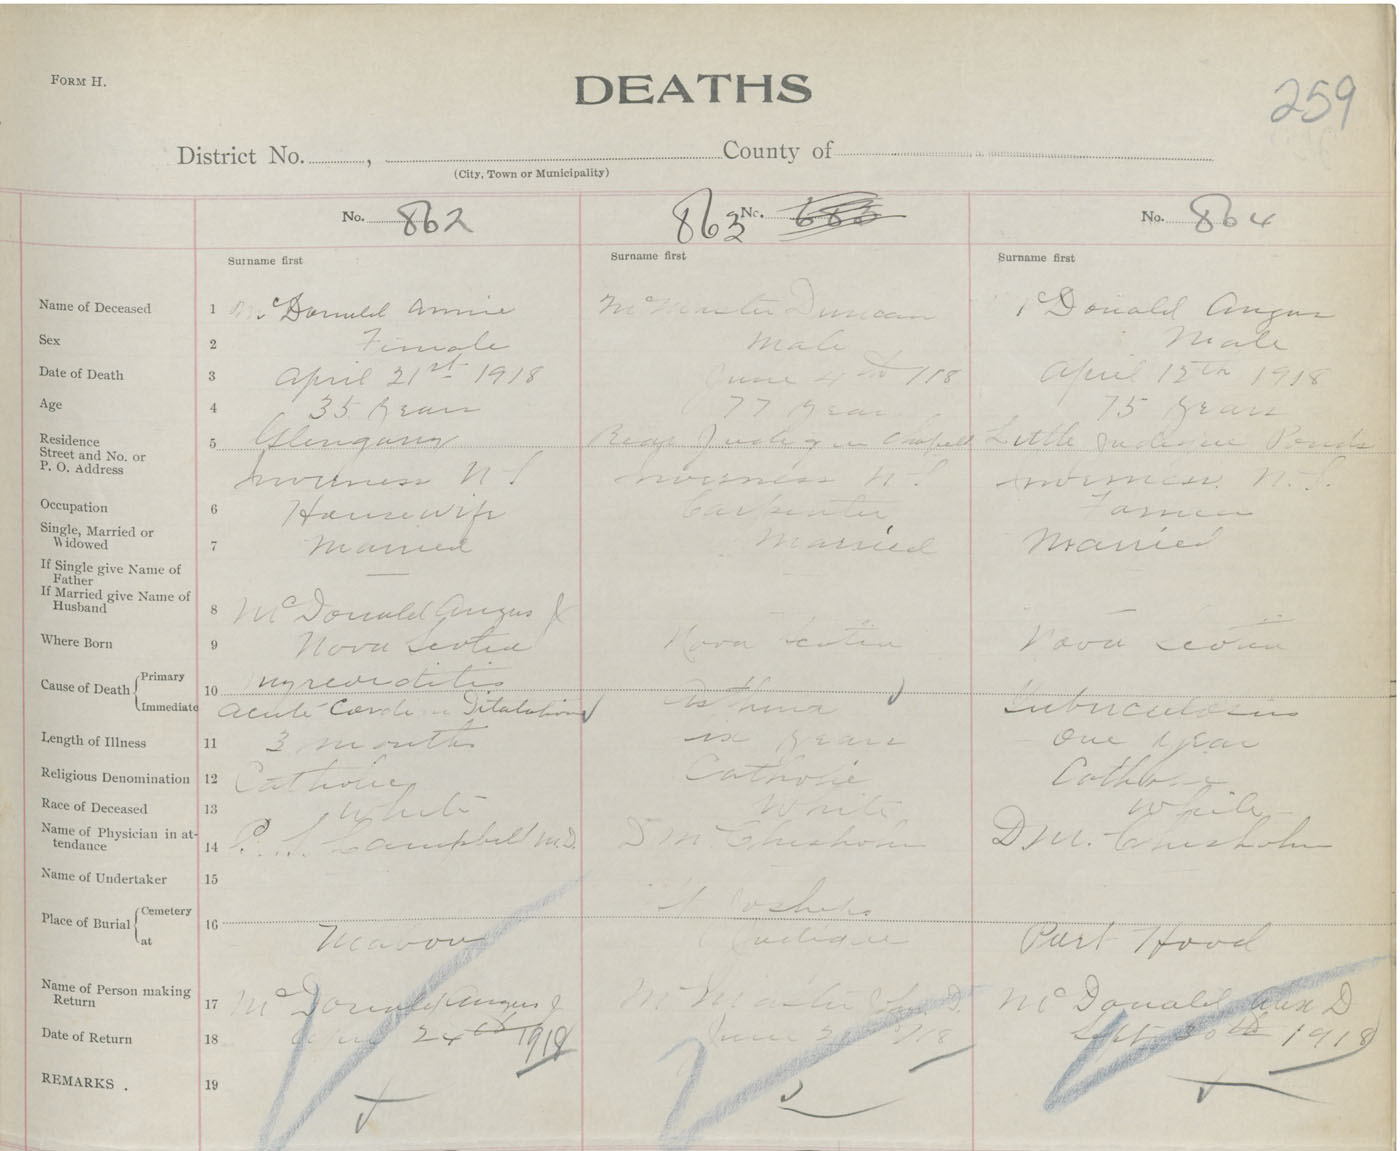 FORM H.
DEATHS
259
District No. , County of
(City, Town or Municipality)
No. 862
863 No.
No. 864
Surname first
Surname first
Surname first
Name of Deceased 1 McDonald Annie
McMaster Duncan
McDonald Angus
Sex 2 Female
Male
Male
Date of Death 3 April 21st 1918
June 4th /18
April 12th 1918
Age 4 35 Years
77 Years
75 Years
Residence
Street and No. or
P. O. Address
5 Glengarry
Inverness N.S.
Chapel
Inverness N.S.
Little Judique Ponds
Inverness N.S.
Occupation 6 Housewife
Carpenter
Farmer
Single, Married or
Widowed
7 Married
Married
Married
If Single give Name of
Father
If Married give Name of
Husband
8 —
McDonald Angus J
Where Born 9 Nova Scotia
Nova Scotia
Nova Scotia
Cause of Death { Primary
Immediate
10
Acute Dilatation
Asthma
Tuberculosis
Length of Illness 11 3 months
Years
One Year
Religious Denomination 12 Catholic
Catholic
Catholic
Race of Deceased 13 White
White
White
Name of Physician in at-
tendance
14 Campbell M.D.
D M Chisholm
D M. Chisholm
Name of Undertaker 15
Place of Burial { Cemetery
at
16
Mabou
St Josephs
Judique
Port Hood
Name of Person making
Return
17 McDonald Angus J
McMaster D.
McDonald Alex D
Date of Return 18 April 24th 1918
June /18
Sept 30th 1918
REMARKS . 19